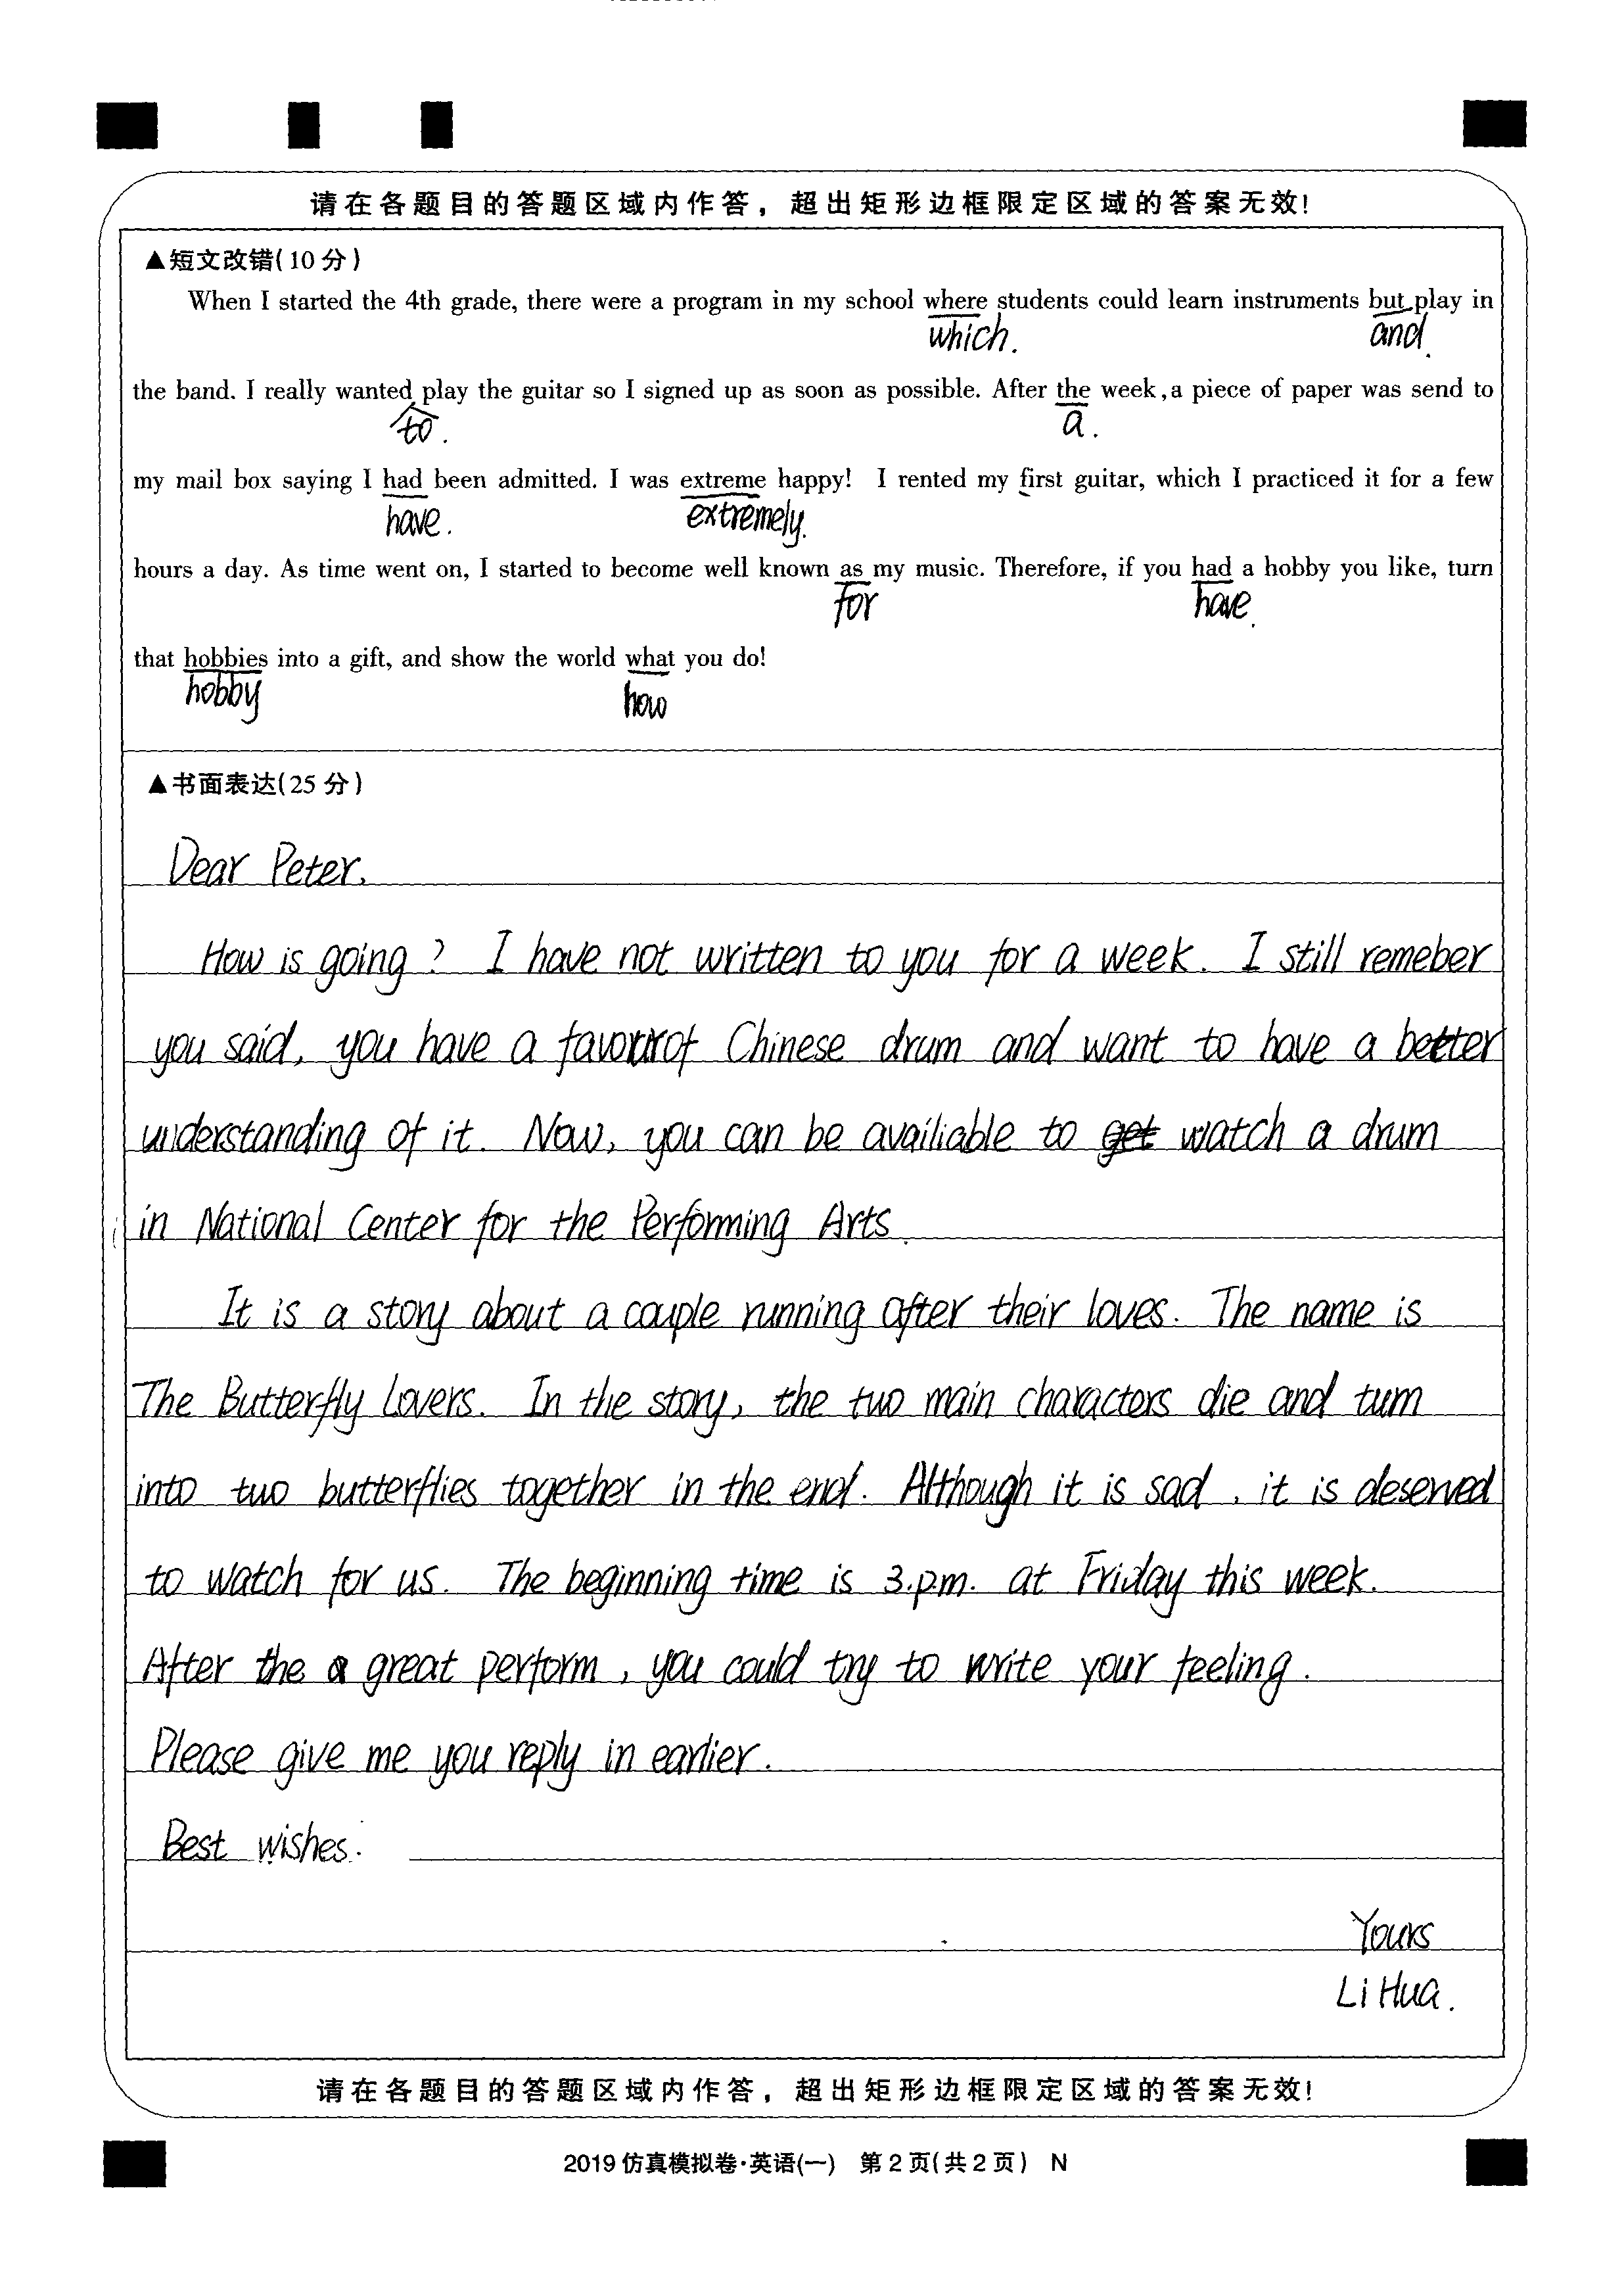 请在各题目的答题区域内作答，超出矩形边框限定区域的答案无效!
▲短文改错(10分)
When I started the 4th grade, there were a program in my school where students could learn instruments but play in
which. and.
the band. I really wanted play the guitar so I signed up as soon as possible. After the week, a piece of paper was send to
to. a.
my mail box saying I had been admitted. I was extreme happy! I rented my first guitar, which I practiced it for a few
have. extremely.
hours a day. As time went on, I started to become well known as my music. Therefore, if you had a hobby you like, turn
for have.
that hobbies into a gift, and show the world what you do!
hobby how
▲书面表达(25分)
Dear Peter.
How is going? I have not written to you for a week. I still remeber
you said, you have a Chinese drum and want to have a better
understanding of it. Now, you can be availiable to get watch a drum
in National Center for the Performing Arts.
It is a story about a couple running after their loves. The name is
The Butterfly Lovers. In the story, the two main characters die and turn
into two butterflies together in the end. Although it is sad, it is deserved
to watch for us. The beginning time is 3.p.m. at Friday this week.
After the a great perform, you could try to write your feeling.
Please give me you reply in earlier.
Best wishes.
Yours
Li Hua.
请在各题目的答题区域内作答，超出矩形边框限定区域的答案无效!
2019仿真模拟卷·英语(一) 第2页(共2页) N